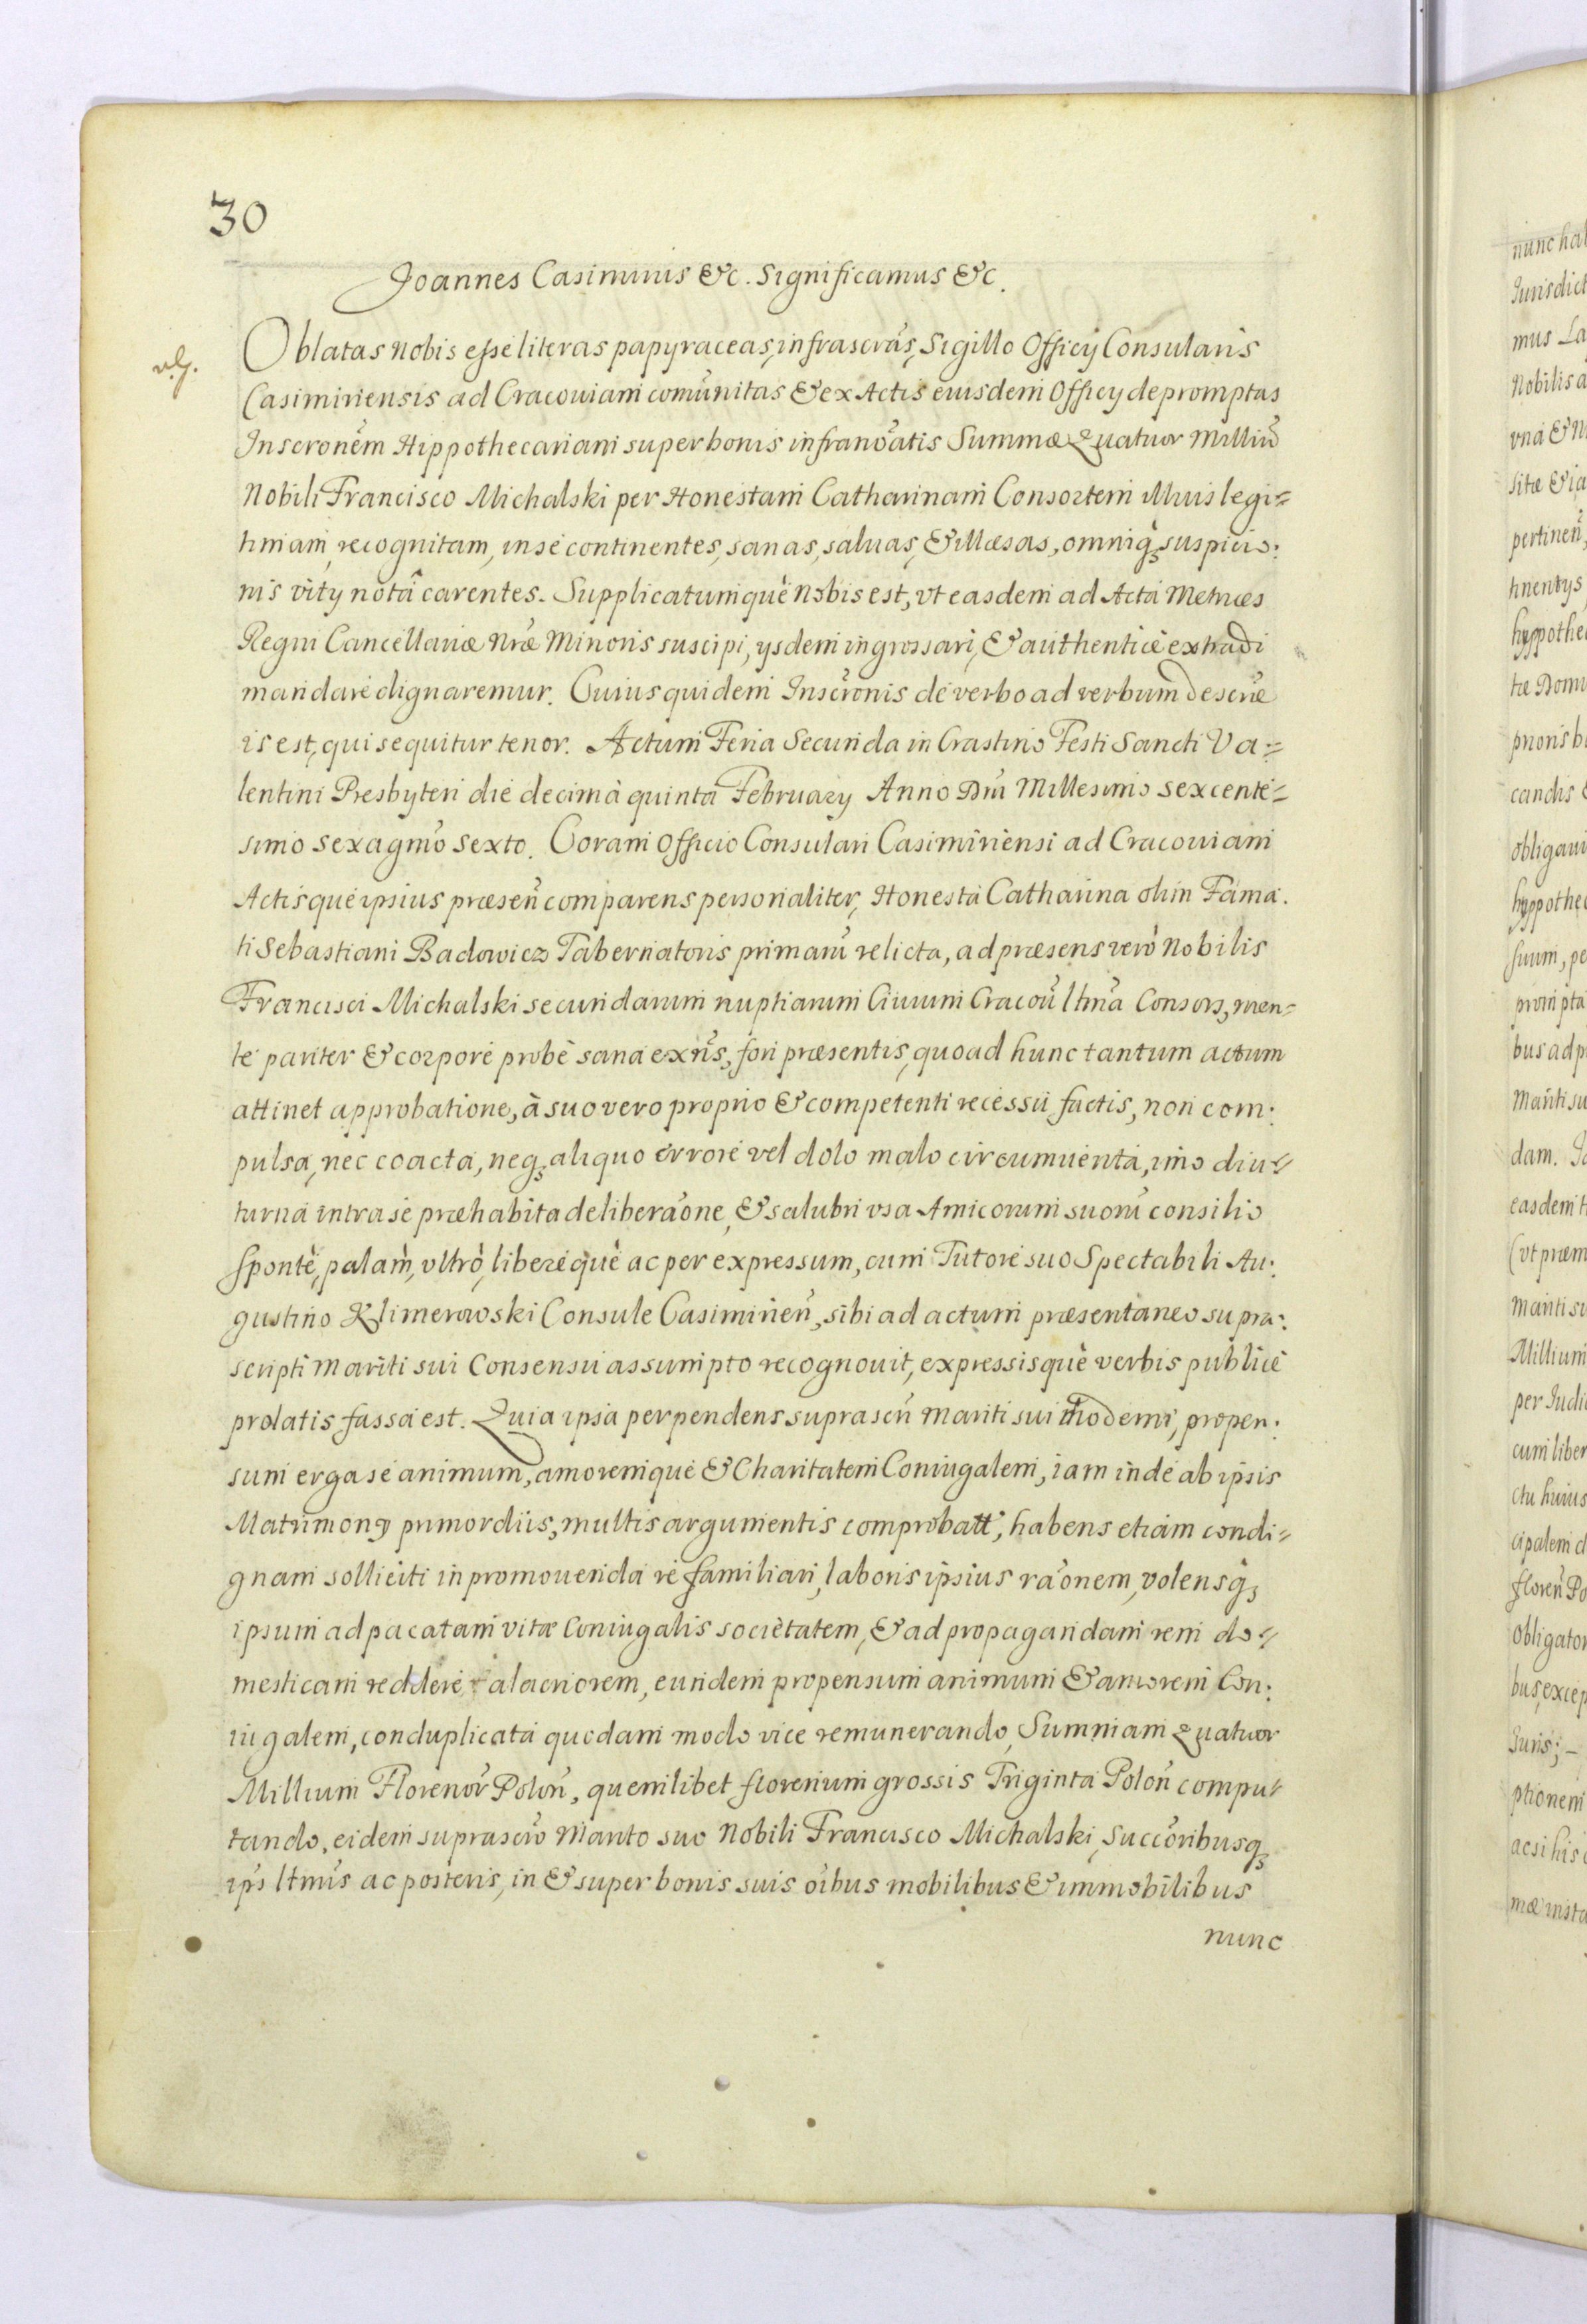 30
Joannes Casimirus &c. Significamus &c.
Oblatas nobis esse literas papyraceas, infrascrãs, Sigillo Officij Consularis
Casimiriensis ad Cracouiam comũnitas & ex Actis eiusdem Officij depromptas
Inscronẽm Hippothecariam super bonis infranõatis Summæ Quatuor Milliũ
Nobili Francisco Michalski per Honestam Catharinam Consortem illius legi=
timam, recognitam, in se continentes, sanas, saluas, & illæsas, omniq̃ suspicio:
nis vitij notâ carentes. Supplicatumquè nobis est, vt easdem ad Acta Metrices
Regni Cancellariæ nræ Minoris suscipi, ijsdem ingrossari, & authenticè extradi
mandare dignaremur. Cuius quidem Inscrõnis de verbo ad verbum descrũe
is est, qui sequitur tenor. Actum Feria Secunda in Crastino Festi Sancti Va:=
lentini Presbyteri die decima quinta February Anno Dñi Millesimo sexcente=
simo sexagmõ sexto. Coram Officio Consulari Casimiriensi ad Cracouiam
Actisque ipsius præseñ comparens personaliter, Honesta Catharina olim Fama.
ti Sebastiani Badowicz Tabernatoris primarũ relicta, ad præsens verò Nobilis
Francisci Michalski secundarum nuptiarum Ciuium Cracoũ ltmã Consors, men=
te pariter & corpore probè sana exñs, fori præsentis, quoad hunc tantum actum
attinet approbatione, à suo vero proprio & competenti recessu factis, non com:
pulsa, nec coacta, neq̃ aliquo errore vel dolo malo circumuenta, imo diu=
turna intra se præhabita deliberãone, & salubri vsa Amicorum suorũ consilio
sponte, palam, vltrò, libereque ac per expressum, cum Tutore suo Spectabili Au:
gustino Klimerowski Consule Casimirieñ, sibi ad actum præsentaneo supra:
scripti mariti sui Consensu assumpto recognouit, expressisquè verbis publicè
prolatis fassa est. Quia ipsa perpendens suprascñ mariti sui moderni, propen:
sum erga se animum, amoremque & Charitatem Coniugalem, iam inde ab ipsis
Matrimony primordiis, multis argumentis comprobatt, habens etiam condi=
gnam solliciti in promouenda re familiari, laboris ipsius rãonem, volensq̃
ipsum ad pacatam vitæ Coniugalis societatem, & ad propagandam rem do=
mesticam reddere alacriorem, eundem propensum animum & amorem Con:
iugalem, conduplicata quodam modo vice remunerando, Summam Quatuor
Millium Florenor̃ Poloñ, quemlibet florenum grossis Triginta Poloñ compu=
tando, eidem suprascrõ Marito suo Nobili Francisco Michalski, Succõribusq̃
ips̃ ltmĩs ac posteris, in & super bonis suis oĩbus mobilibus & immobilibus
nunc